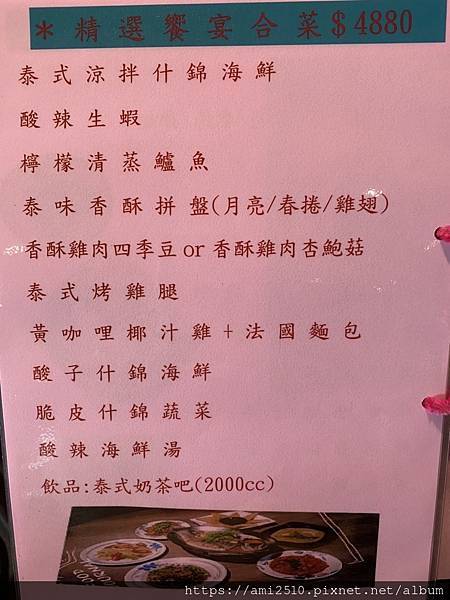 *精選饗宴合菜$4880
泰式涼拌什錦海鮮
酸辣生蝦
檸檬清蒸鱸魚
泰味香酥拼盤(月亮/春捲/雞翅)
香酥雞肉四季豆or香酥雞肉杏鮑菇
泰式烤雞腿
黃咖哩椰汁雞+法國麵包
酸子什錦海鮮
脆皮什錦蔬菜
酸辣海鮮湯
飲品:泰式奶茶吧(2000cc)
https://ami2510.pixnet.net/album